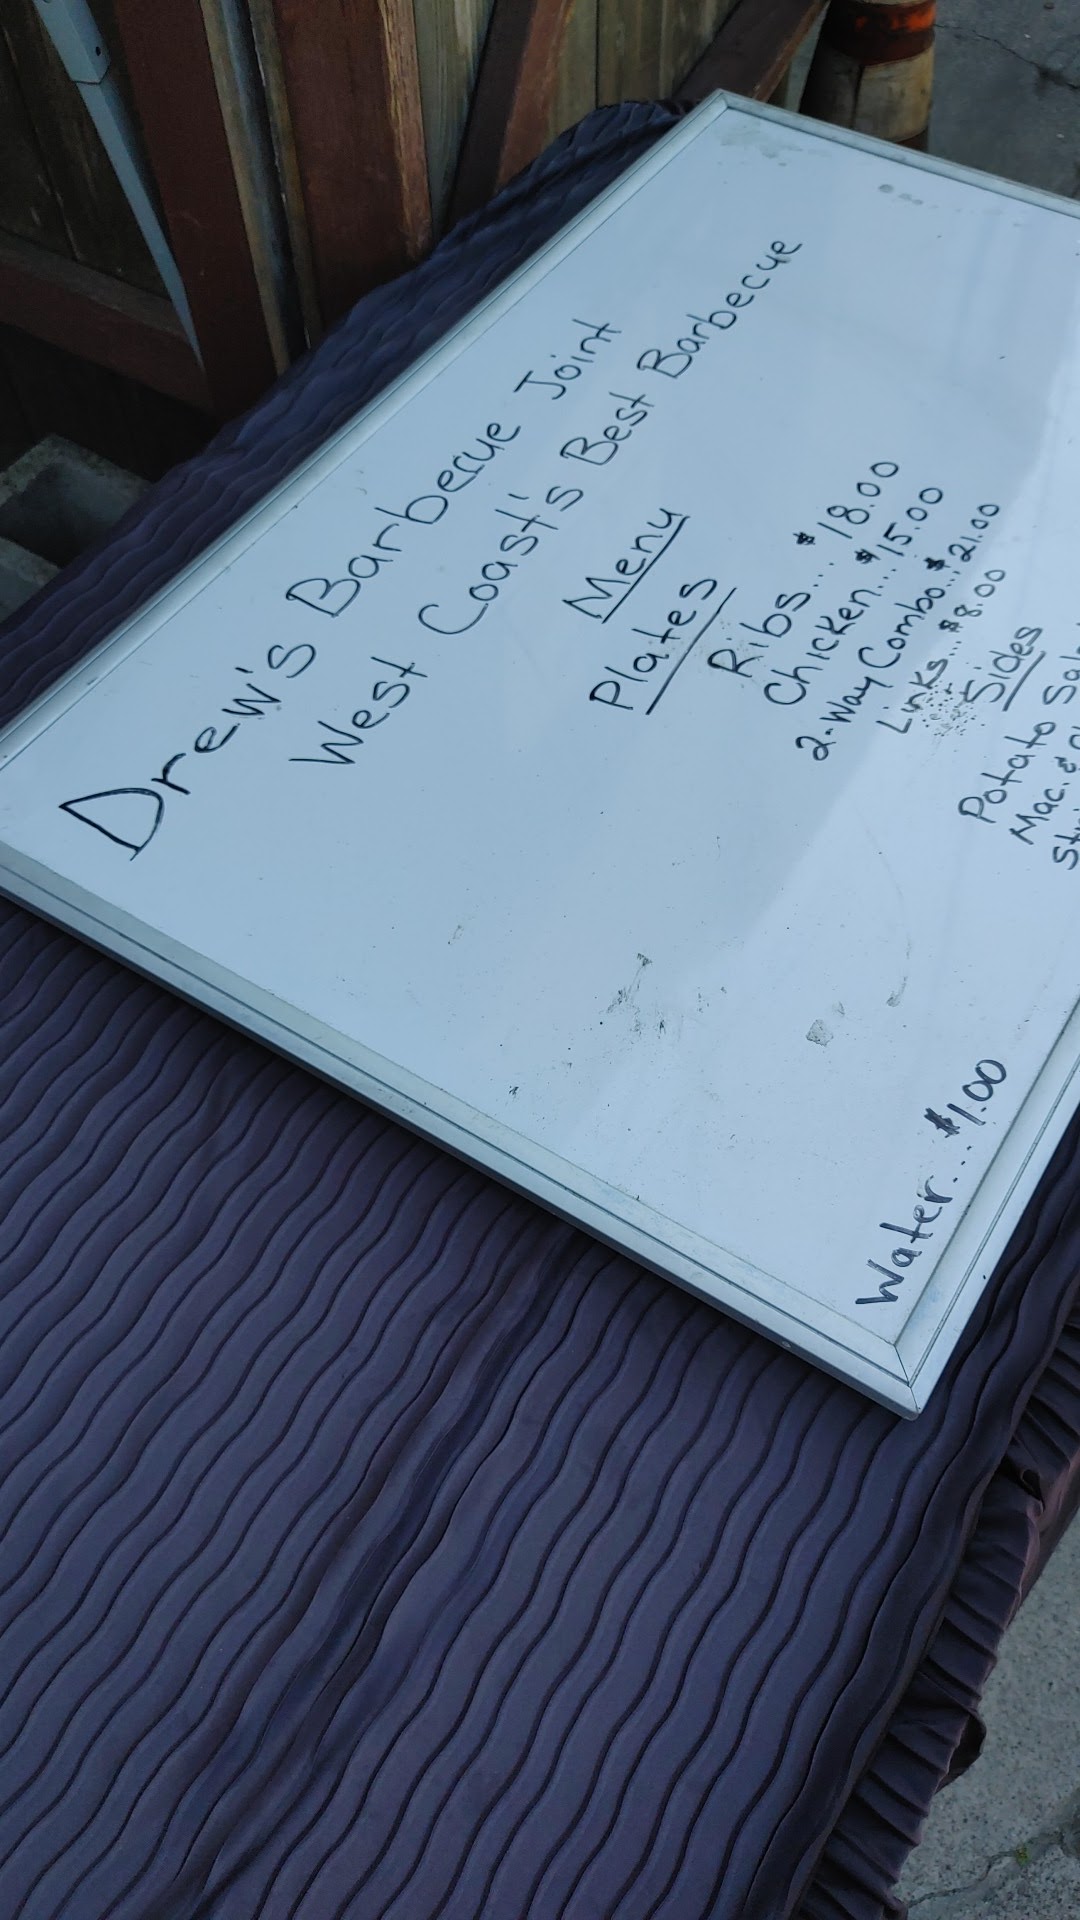 Drew's Barbecue Joint
West Coast's Best Barbecue
Menu
Plates
Ribs.... $18.00
Chicken.... $15.00
2-Way Combo... $21.00
Links... $8.00
Sides
Potato
Mac. &
Water.... $1.00